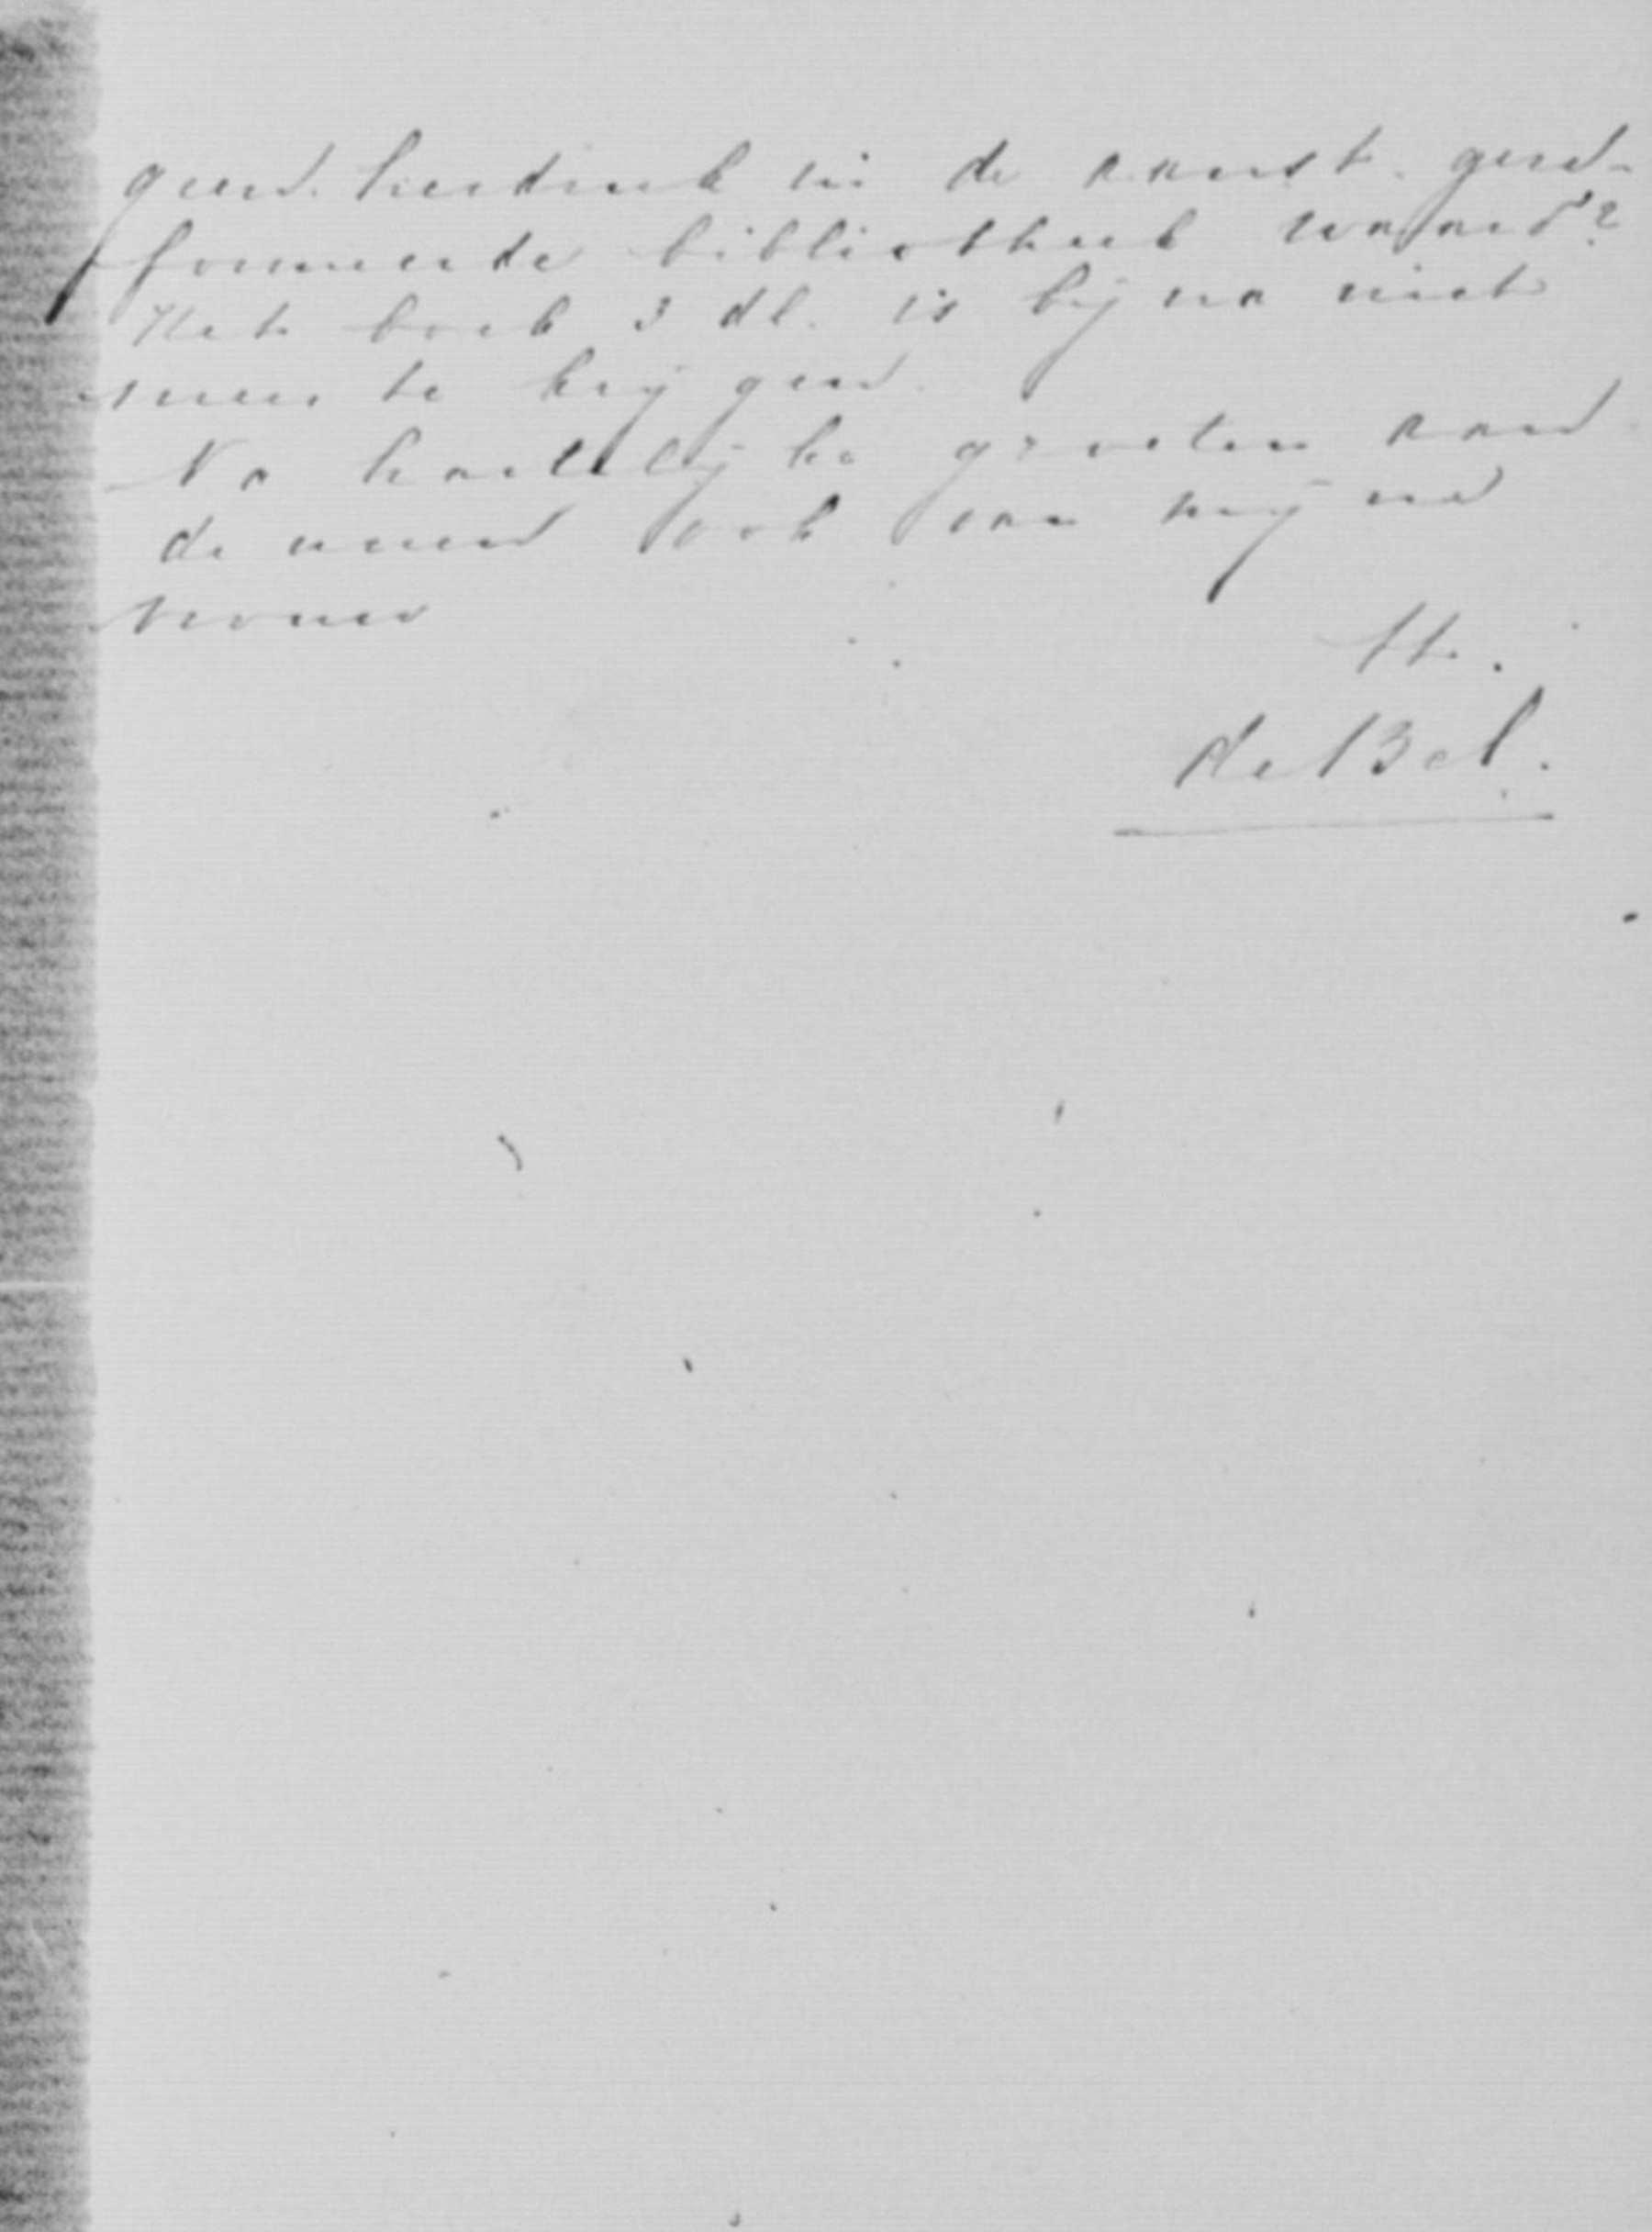 geen herdruk in de aanst. gere-
formeerde bibliotheek waard?
Het boek 3 dl. is bijna niet
meer te krijgen.
Na hartelijke groeten aan
de uwen ook van mijne
vrouw
tt.
de Bel.